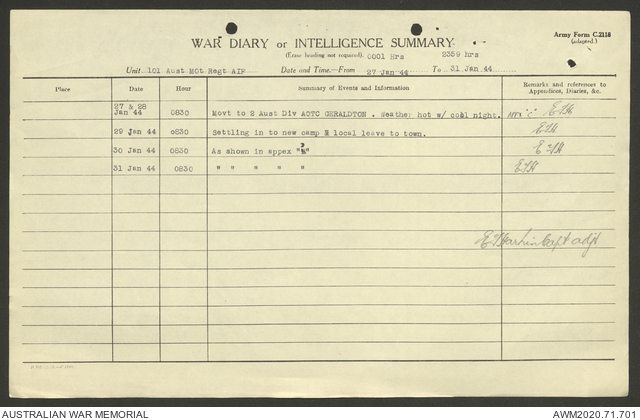 Army Form C.2118
(adapted.)
WAR DIARY or INTELLIGENCE SUMMARY.
(Erase heading not required). 0001 Hrs 2359 hrs
Unit. 101 Aust MOt Regt AIF Date and Time.—From 27 Jan 44 To 31 Jan 44
Place Date Hour Summary of Events and Information Remarks and references to Appendices, Diaries, &c.
27 & 28
Jan 44 0830 Movt to 2 Aust Div AOTC GERALDTON . Weather hot w/ cool night. "C"
29 Jan 44 0830 Settling in to new camp & local leave to town.
30 Jan 44 0830 As shown in appex
31 Jan 44 0830 " " " " "
Capt adjt
AUSTRALIAN WAR MEMORIAL AWM2020.71.701